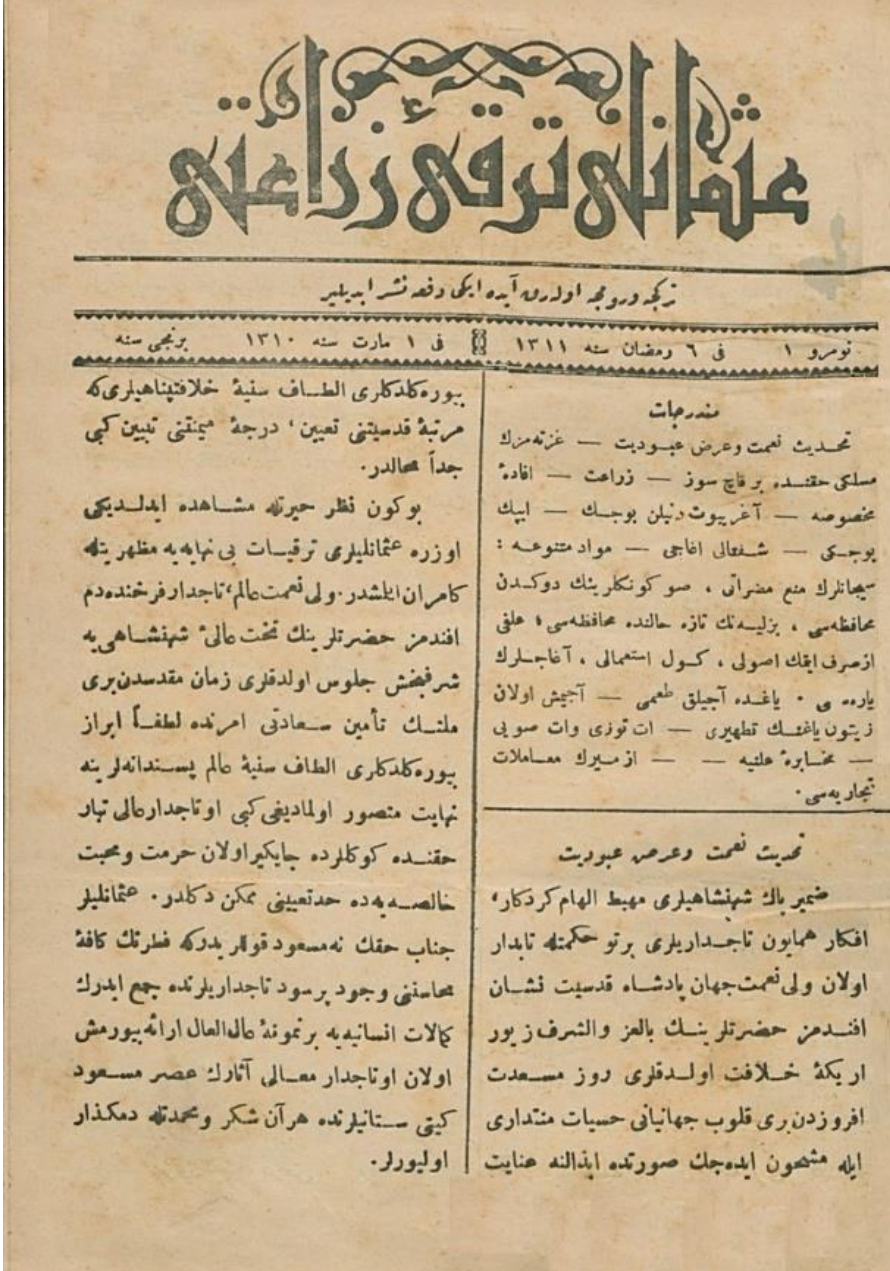 عثمانلی ترقیٔ زراعتی
تركجه و رومجه اوله‌رق آیده ایكی دفعه نشر ایدیلیر
نومرو ١ فی ٦ رمضان سنه ١٣١١ فی ١ مارت سنه ١٣١٠ برنجی سنه
مندرجات
تحدیث نعمت وعرض عبودیت — غزته‌مزك
مسلكی حقنده بر قاچ سوز — زراعت — افادهٔ
مخصوصه — آغریپوت دنیلن بوجك — ایپك
بوجكی — شفتالی اغاجی — مواد متنوعه :
سیچانلرك منع مضراتی ، صو كونكلرینك دوكدن
محافظه‌سی ، بزلیه‌نك تازه حالنده محافظه‌سی ، علفی
ازصرف ایتمك اصولی ، كول استعمالی ، آغاجلرك
یاره‌سی . یاغده آجیلق طعمی — آجیمش اولان
زیتون یاغنك تطهیری — ات توزی وات صویی
— مخابرهٔ علنیه — — ازمیرك معاملات
تجاریه‌سی .
تحدیث نعمت وعرض عبودیت
ضمیر پاك شهنشاهیلری مهبط الهام كردكار ،
افكار همایون تاجداریلری پرتو حكمتله تابدار
اولان ولی نعمت‌جهان پادشاه قدسیت نشان
افندمز حضرتلرینك بالعز والشرف زیور
اریكهٔ خلافت اولدقلری روز مسعدت
افروزدن بری قلوب جهانیانی حسیات منتداری
ایله مشحون ایده‌جك صورتده ابذالنه عنایت
بیوره‌كلدكلری الطاف سنیهٔ خلافتپناهیلری‌كه
مرتبهٔ قدسیتنی تعیین ، درجهٔ میمنتنی تبیین كبی
جداً محالدر .
بوكون نظر حیرتله مشاهده ایدلدیكی
اوزره عثمانلیلری ترقیات بی نهایه‌یه مظهریتله
كامران ایلمشدر . ولی نعمت عالم ، تاجدار فرخنده‌دم
افندمز حضرتلرینك تخت عالیٔ شهنشاهی‌یه
شرفبخش جلوس اولدقلری زمان مقدسدن‌بری
ملتك تأمین سعادتی امرنده لطفاً ابراز
بیوره‌كلدكلری الطاف سنیهٔ عالم پسندانه‌لرینه
نهایت متصور اولمادیغی كبی او تاجدار عالی تبار
حقنده كوكللرده جایكیر اولان حرمت ومحبت
خالصه‌یه‌ده حدتعیینی ممكن دكلدر . عثمانلیلر
جناب حقك نه‌مسعود قوللریدركه فطرتك كافهٔ
محاسننی وجود پرسود تاجداریلرنده جمع ایدرك
كمالات انسانیه‌یه برنمونهٔ عال‌العال ارائه‌بیورمش
اولان اوتاجدار معالی آثارك عصر مسعود
كیتی ستانیلرنده هرآن شكر ومحمدتله دمكذار
اولیورلر .